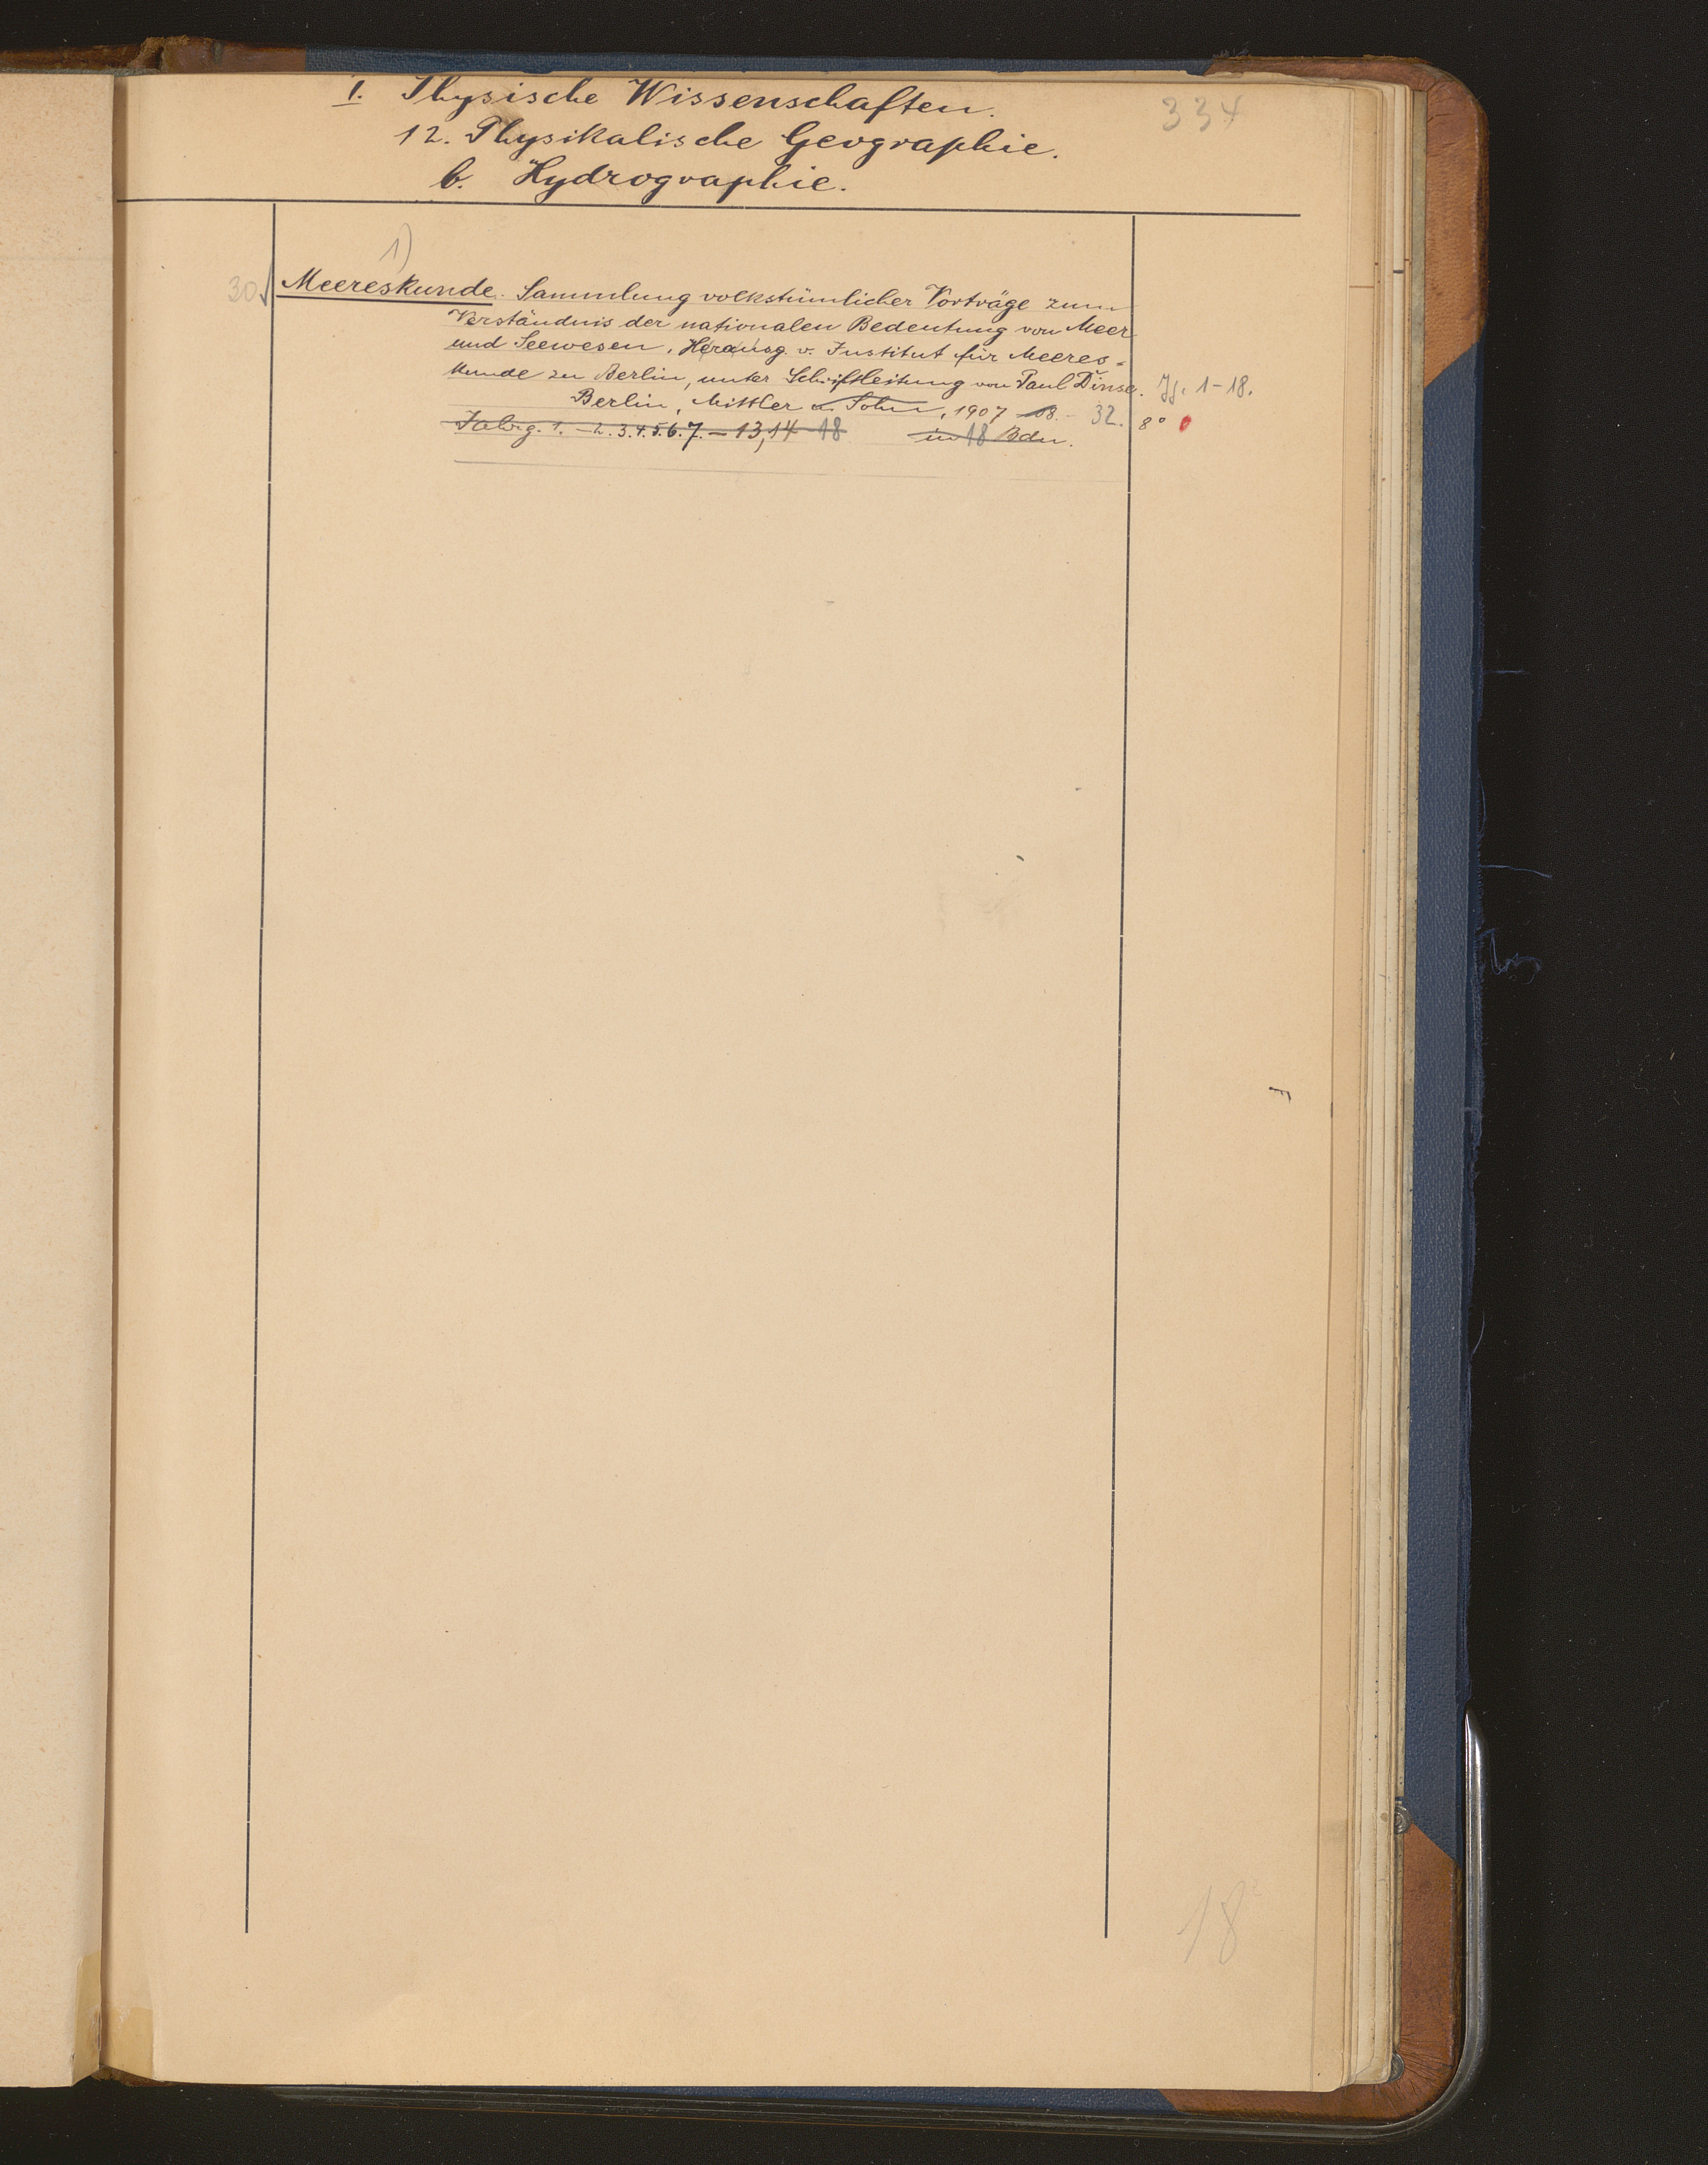 I. Physische Wissenschaften.
334
12. Physikalische Geographie.
b. Hydrographie.
1)
30 Meereskunde. Sammlung volkstümlicher Vorträge zum
Verständnis der nationalen Bedeutung von Meer
und Seewesen. Herausg. v. Institut für Meeres-
kunde zu Berlin, unter Schriftleitung von Paul Dinse. Jg. 1-18.
Berlin, Mittler u. Sohn, 1907-08.-32. 8°
Jahrg. 1.-2.3.4.5.6.7.-13,14-18 in 18 Bdn.
18